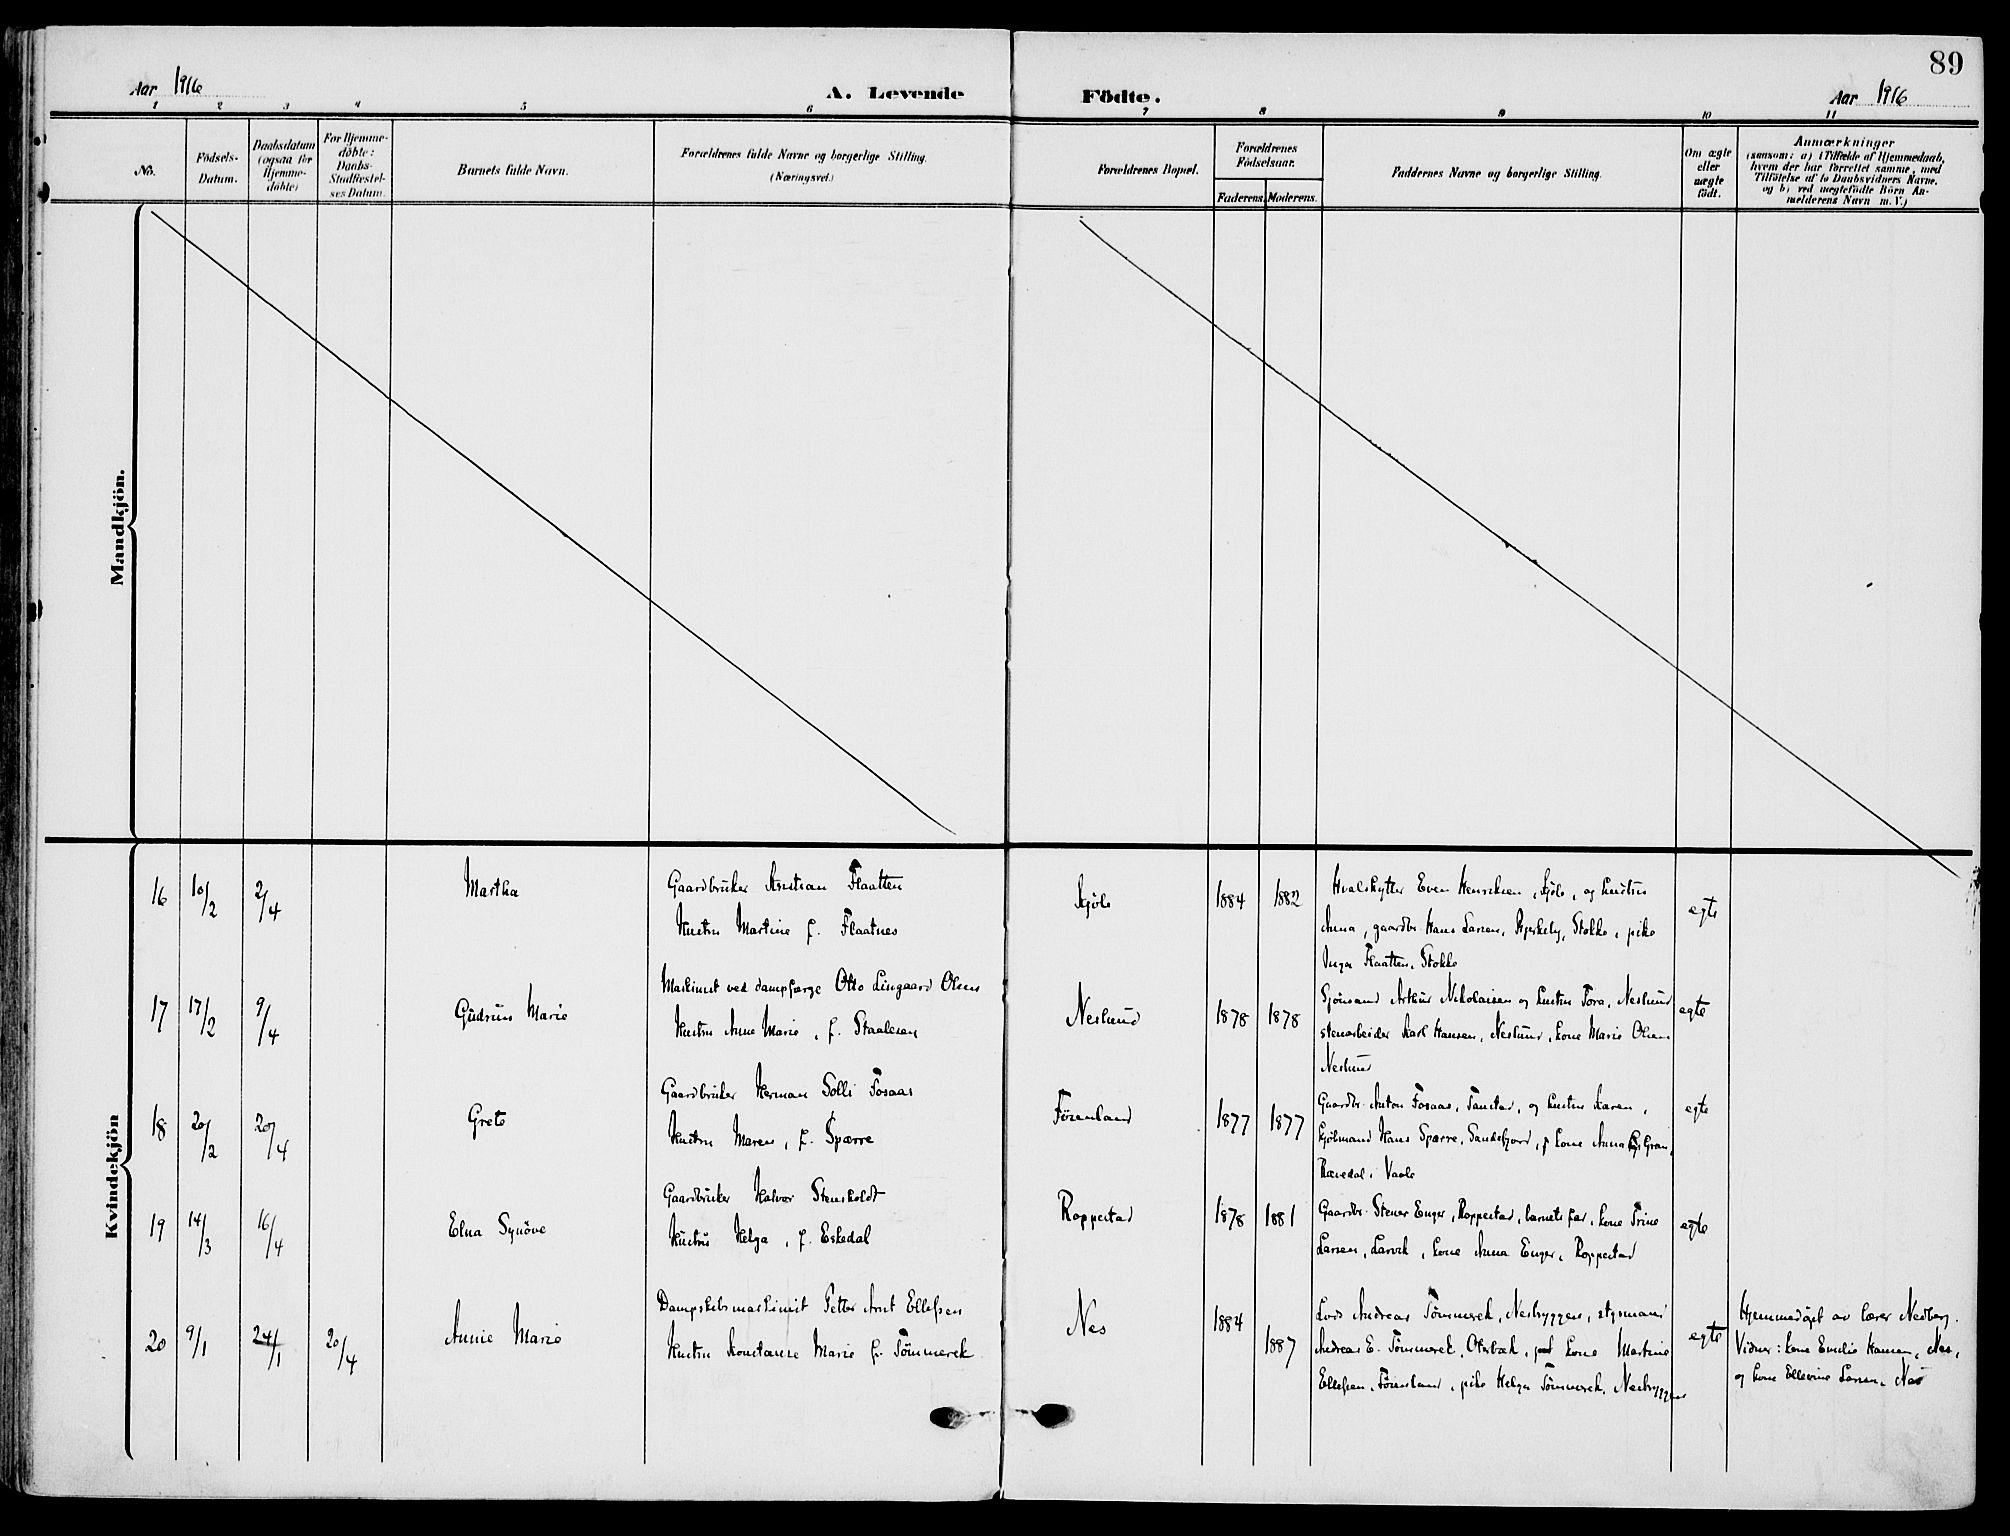 89
Aar 1916
A. Levende Födte.
Aar 1916
1 2 3 4 5 6 7 8 9 10 11
No.
Födsels-
Datum.
Daabsdatum
(ogsaa for
Hjemme-
döbte)
For Hjemme-
döbte:
Daabs-
Stadfæstel-
ses Datum.
Barnets fulde Navn.
Forældrenes fulde Navne og borgerlige Stilling.
(Næringsvei.)
Forældrenes Bopæl.
Forældrenes
Födselsaar.
Faderens. Moderens.
Faddernes Navne og borgerlige Stilling.
Om ægte
eller
uægte
födt.
Anmærkninger
(saasom: a) i Tilfælde af Hjemmedaab,
hvem der har forrettet samme, med
Tilföielse af to Daabsvidners Navne,
og b) ved uægtefödte Börn An-
melderens Navn m. V.)
Mandkjön.
Kvindekjön
16 10/2 2/4 Martha
Gaardbruker Flaatten
Kustru Martine f. Flaatnes
Skjøle 1884 1882
Hvalskytter Even Henriksen, Skjøle, og kustru
Anna, gaardbr. Hans Larsen, Bjerkely, Stokke, pike
Inga Flaatten, Stokke
egte
17 17/2 9/4 Gudrun Marie
Maskinist ved dampfærge Otto Lingaard Olsen
Kustru Anne Marie, f. Staalesen
Neslund 1878 1878
Sjömand Arthur Nikolaisen og kustru Tora, Neslund
stenarbeider Karl Hansen, Neslund, kone Marie Olsen
Neslund
egte
18 20/2 20/4 Grete
Gaardbruker Herman Solli Fosaas
Kustru Maren, f. Spærre
Førenland 1877 1877
Gaardbr. Anton Fosaas, Fanstad, og kustru Karen,
Hans Spærre, Sandefjord, kone Anna Gran,
Rævedal i Vaale
egte
19 14/3 16/4 Elna Synöve
Gaardbruker Halvor Stensholdt
Kustru Helga, f. Eskedal
Roppestad 1878 1881
Gaardbr. Stener Enger, Roppestad, barnets far, kone Trine
Larsen, Larvik, kone Anna Enger, Roppestad
egte
20 9/1 24/1 20/4 Annie Marie
Dampskibsmaskinist Petter Arnt Ellefsen
Kustru Konstanse Marie f. Tömmerek
Nes 1884 1887
Lods Andreas Tømmerek, Nesbryggen, styrmand
Andreas E. Tømmerek, Oterbæk, kone Martine
Ellefsen, Førenland, pike Helga Tømmerek, Nesbryggen
egte
Hjemmedøpt av lærer Nesberg.
Vidner: kone Emilie Hansen, Nes,
og kone Ellevine Larsen, Nes